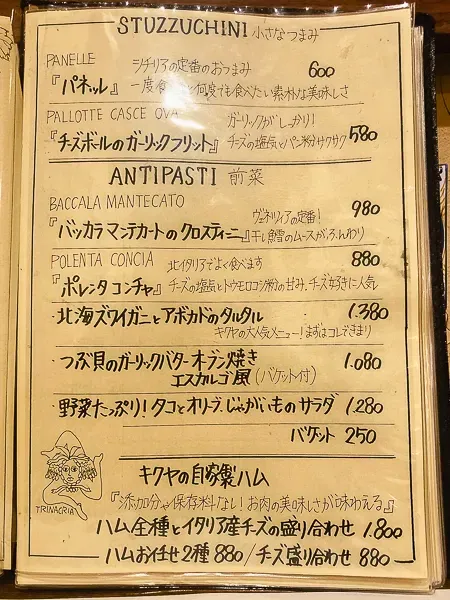 STUZZUCHINI 小さなつまみ
PANELLE シチリアの定番のおつまみ 600
『パネッレ』 一度食 何度でも食べたい素朴な美味しさ
PALLOTTE CASCE OVA ガーリックがしっかり!
『チーズボールのガーリックフリット』 チーズの塩気とパン粉サクサク 580
ANTIPASTI 前菜
BACCALA MANTECATO ヴェネツィアの定番! 980
『バッカラ マンテカートの クロスティーニ』 干し鱈のムースがふんわり
POLENTA CONCIA 北イタリアでよく食べます 880
『ポレンタ コンチャ』 チーズの塩気とトウモロコシ粉の甘み、チーズ好きに人気
・北海ズワイガニとアボカドのタルタル 1.380
キクヤの大人気メニュー!まずはコレできまり
・つぶ貝のガーリックバターオーブン焼き 1.080
エスカルゴ風 (バケット付)
・野菜たっぷり!タコとオリーブ、じゃがいものサラダ 1.280
バケット 250
キクヤの自家製ハム
『添加物や保存料なし!お肉の美味しさが味わえる』
TRINACRIA
ハム全種とイタリア産チーズの盛り合わせ 1.800
ハムお任せ2種 880/チーズ盛り合わせ 880